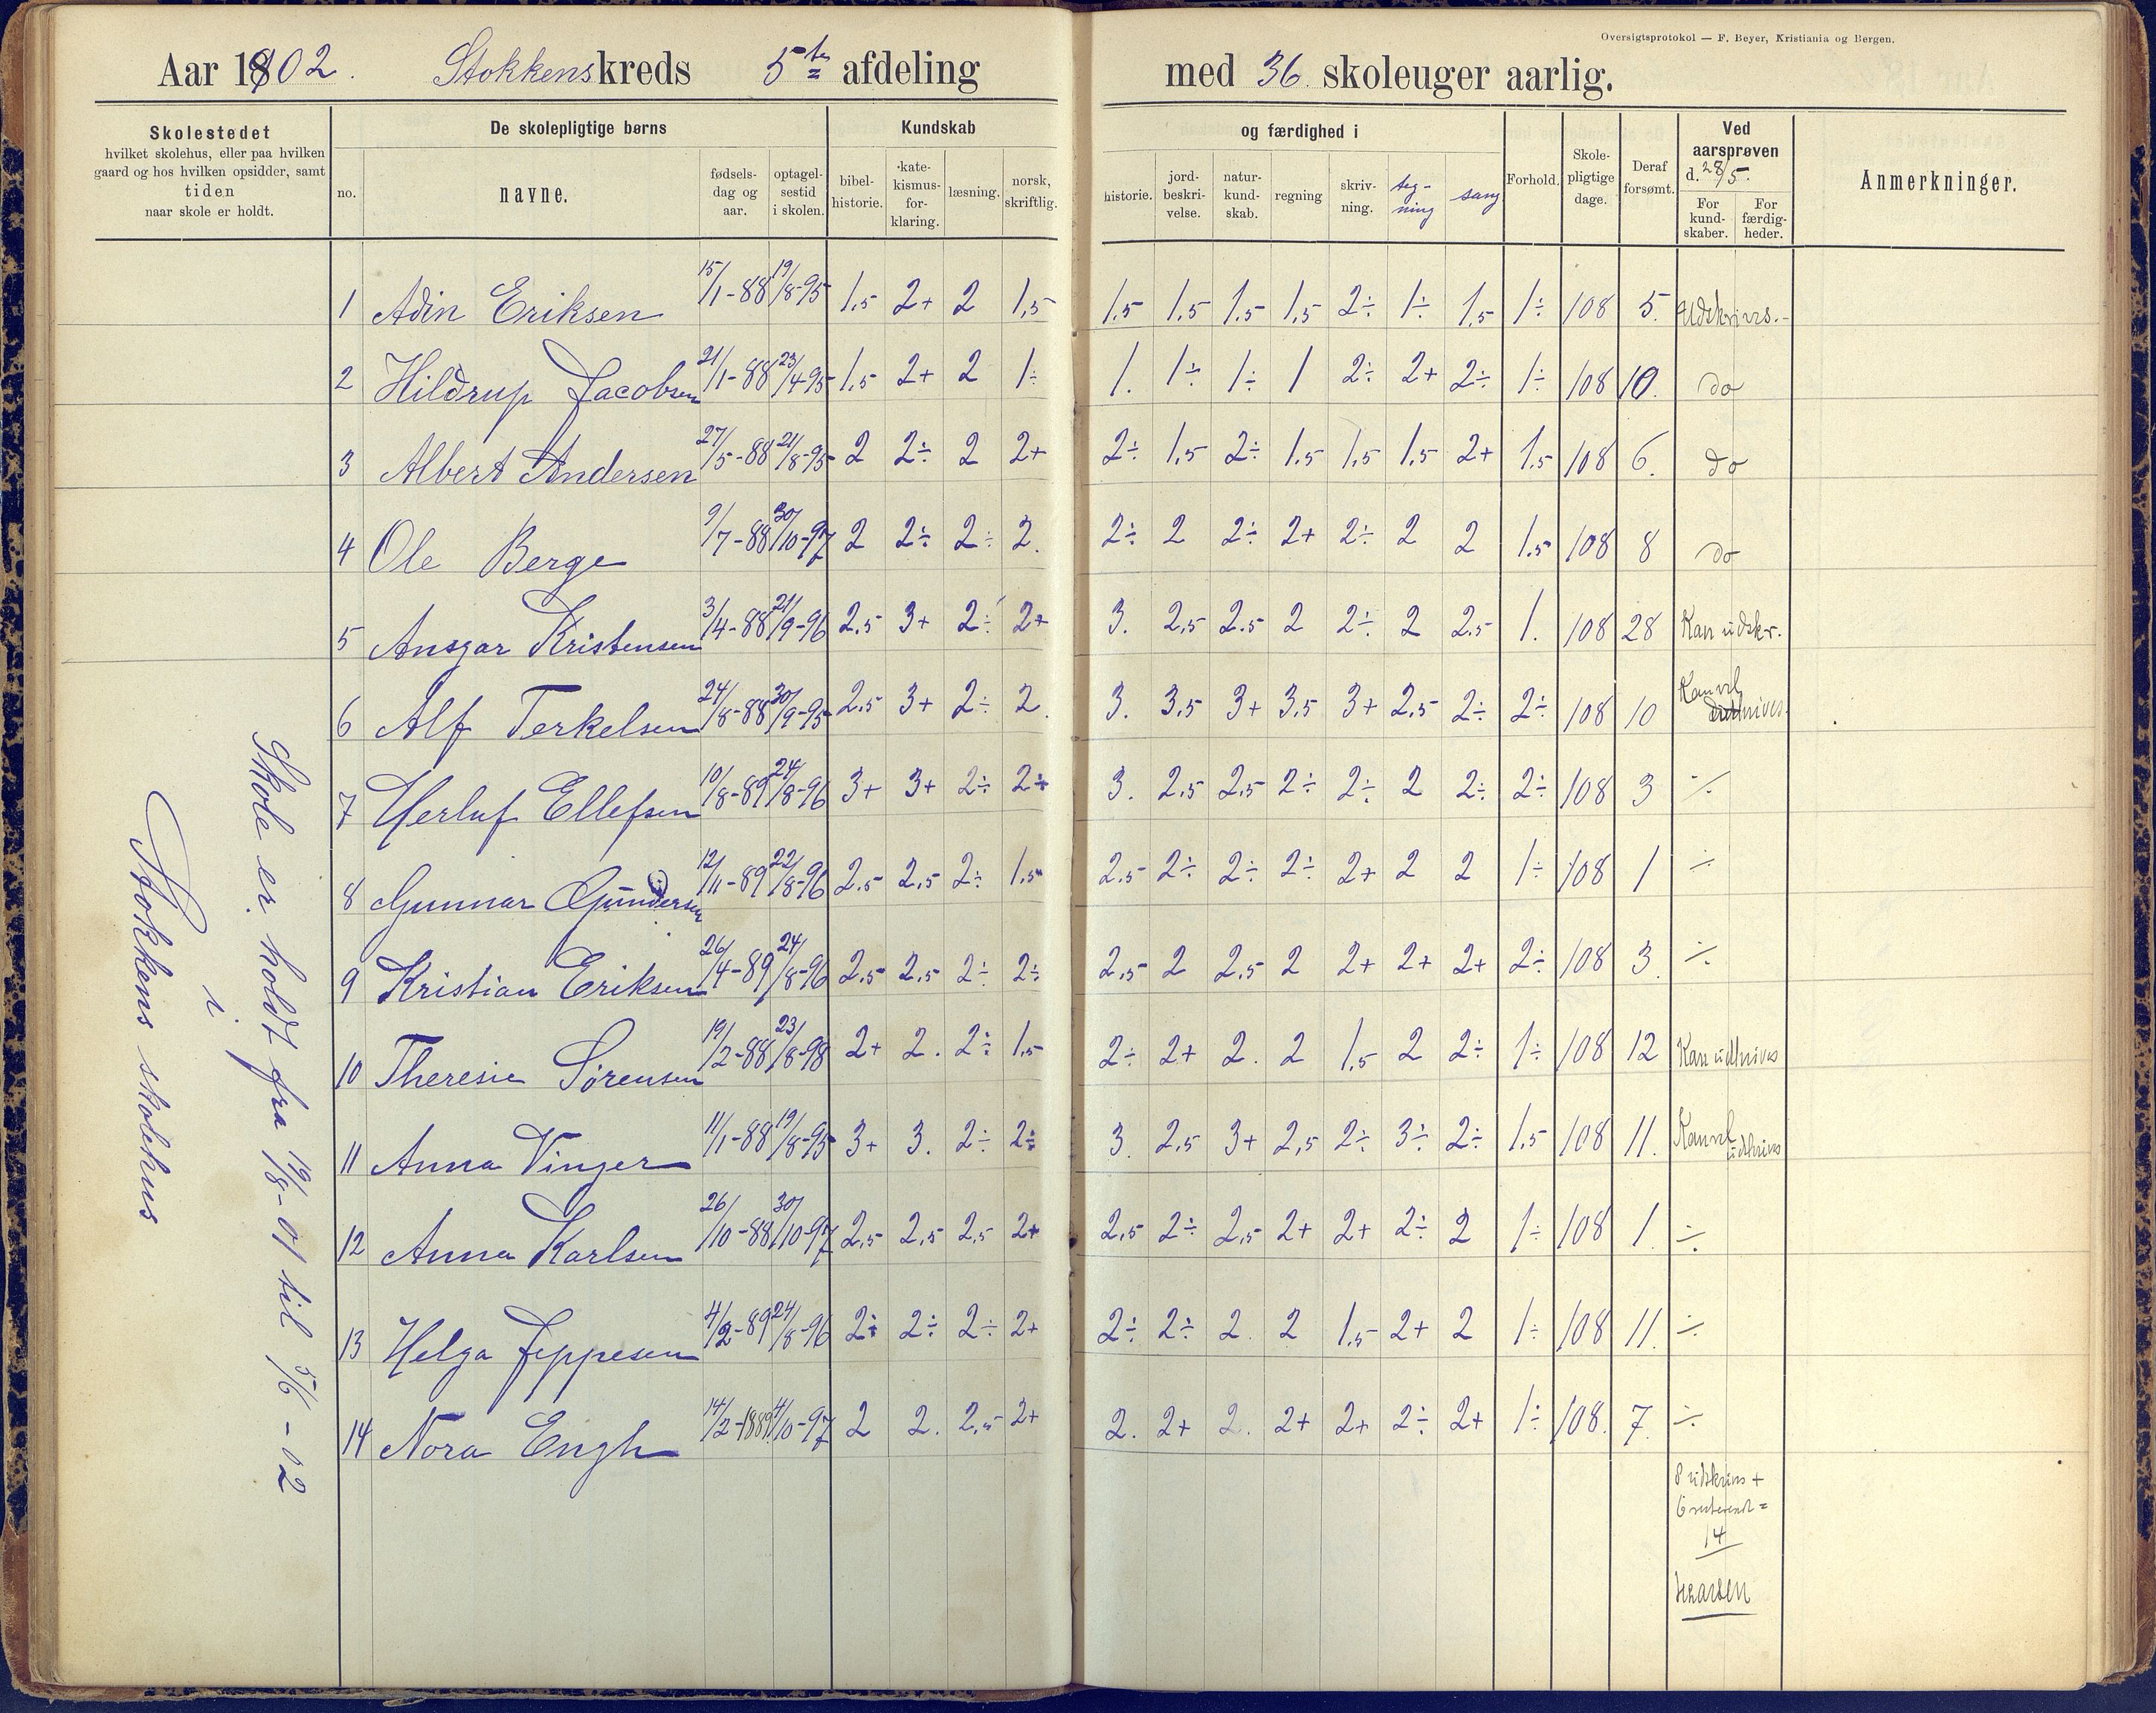 Oversigtsprotokol — F. Beyer, Kristiania og Bergen.
Aar 1902. Stokkens kreds 5te afdeling med 36 skoleuger aarlig.
Skolestedet
hvilket skolehus, eller paa hvilken
gaard og hos hvilken opsidder, samt
tiden
naar skole er holdt.
De skolepligtige børns
no.
navne.
fødsels-
dag og
aar.
optagel-
sestid
i skolen.
Kundskab
bibel-
historie.
kate-
kismus-
for-
klaring.
læsning.
norsk,
skriftlig.
og færdighed i
historie.
jord-
beskri-
velse.
natur-
kund-
skab.
regning
skriv-
ning.
teg-
ning
sang
Forhold.
Skole-
pligtige
dage.
Deraf
forsømt.
Ved
aarsprøven
d. 28/5.
For
kund-
skaber.
For
færdig-
heder.
Anmerkninger.
1 Adin Eriksen 15/1-88 19/8-95 1,5 2+ 2 1,5 1.5 1,5 1.5 1,5 2÷ 1÷ 1,5 1÷ 108 5. Udskrives.
2 Hildrup Jacobsen 21/1-88 23/4-95 1,5 2+ 2 1÷ 1. 1÷ 1÷ 1 2÷ 2+ 2÷ 1÷ 108 10. do
3 Albert Andersen 27/5-88 21/8-95 2 2÷ 2 2+ 2÷ 1,5 2÷ 1.5 1,5 1,5 2+ 1.5 108 6. do
4 Ole Berge 9/7-88 30/10-97 2 2÷ 2÷ 2. 2÷ 2 2÷ 2+ 2÷ 2 2 1.5 108 8 do
5 Ansgar Kristensen 3/4-88 21/9-96 2.5 3+ 2÷ 2+ 3. 2,5 2.5 2 2÷ 2 2.5 1. 108 28 Kan udskr.
6 Alf Terkelsen 24/8-88 30/9-95 2,5 3+ 2÷ 2. 3. 3,5 3+ 3,5 3+ 2,5 2÷ 2÷ 108 10 Kan vel
7 Herluf Ellefsen 10/8-89 24/8-96 3+ 3+ 2÷ 2÷ 3. 2,5 2,5 2÷ 2÷ 2 2÷ 2÷ 108 3 ÷
8 Gunnar Gundersen 12/11-89 22/8-96 2.5 2,5 2÷ 1.5 2.5 2÷ 2÷ 2÷ 2+ 2 2 1÷ 108 1 ÷
9 Kristian Eriksen 26/4-89 24/8-96 2.5 2,5 2÷ 2÷ 2,5 2 2,5 2 2+ 2+ 2+ 2÷ 108 3. ÷
10 Theresie Sørensen 19/2-88 23/8-98 2+ 2. 2÷ 1,5 2÷ 2+ 2. 2 1,5 2 2÷ 1÷ 108 12 Kan udskrives
11 Anna Vinger 11/1-88 19/8-95 3+ 3. 2÷ 2÷ 3. 2,5 3+ 2,5 2÷ 3÷ 2÷ 1,5 108 11. Kan vel udskrives
12 Anna Karlsen 26/10-88 30/10-97 2,5 2,5 2,5 2+ 2,5 2÷ 2,5 2+ 2+ 2÷ 2 1÷ 108 1. ÷
13 Helga Jeppesen 4/2-89 24/8-96 2÷ 2÷ 2÷ 2+ 2÷ 2÷ 2. 2 1,5 2+ 2 1÷ 108 11. ÷
14 Nora Engh 14/2-1889 4/10-97 2 2. 2,5 2+ 2. 2+ 2. 2+ 2+ 2÷ 2+ 1÷ 108. 7. ÷
8 udskrives +
6 =
14
Skole er holdt fra 19/8-01 til 5/6-02
i
Stokkens skolehus